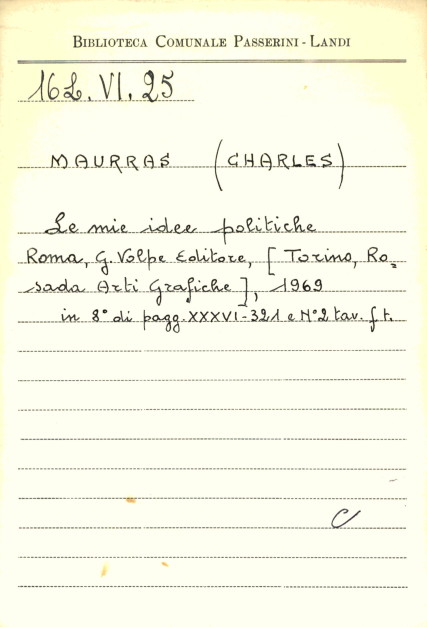 BIBLIOTECA COMUNALE PASSERINI - LANDI
16L.VI.25
MAURRAS (CHARLES)
Le mie idee politiche
Roma, G. Volpe Editore, [Torino, Ro=
sada Arti Grafiche], 1969
in 8° di pagg. XXXVI-321 e N°2 tav. f.t.
C